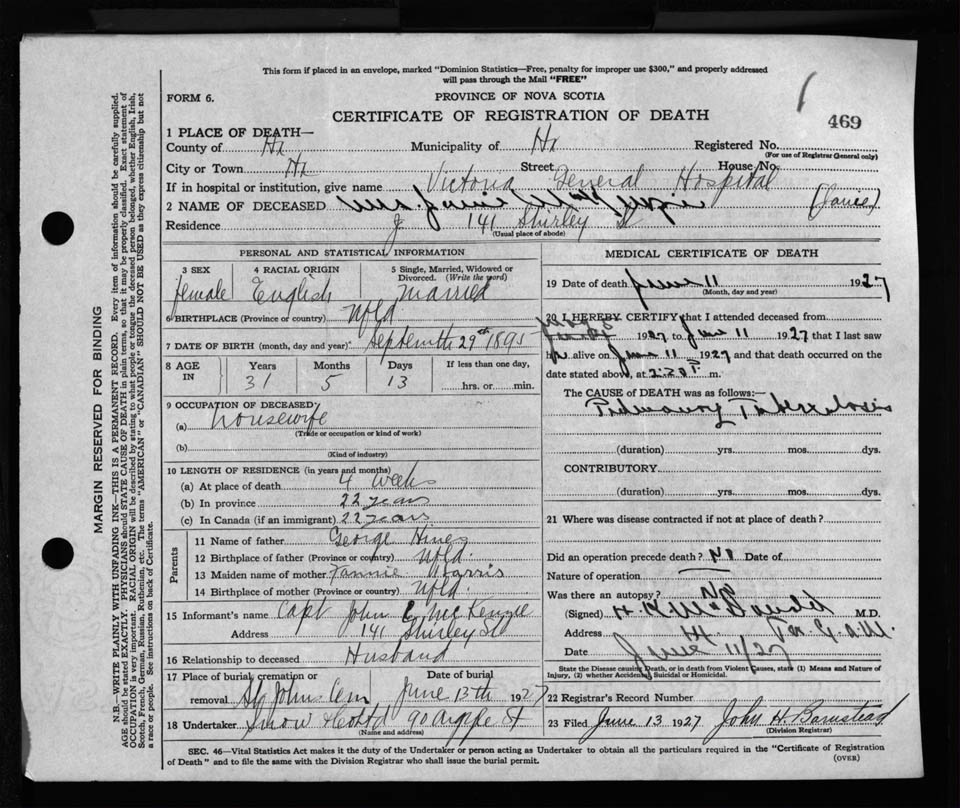 This form if placed in an envelope, marked "Dominion Statistics—Free, penalty for improper use $300," and properly addressed
will pass through the Mail "FREE"
FORM 6.
PROVINCE OF NOVA SCOTIA
CERTIFICATE OF REGISTRATION OF DEATH
469
1 PLACE OF DEATH—
County of Hx Municipality of Hx Registered No.
(For use of Registrar General only)
City or Town Hx Street House No.
If in hospital or institution, give name Victoria General Hospital
2 NAME OF DECEASED Mrs. Janie McKenzie (Janie)
Residence 141 Shirley St
(Usual place of abode)
PERSONAL AND STATISTICAL INFORMATION
3 SEX 4 RACIAL ORIGIN 5 Single, Married, Widowed or Divorced. (Write the word)
female English Married
6 BIRTHPLACE (Province or country) Nfld
7 DATE OF BIRTH (month, day and year) September 29th 1895
8 AGE IN Years Months Days If less than one day,
31 5 13 hrs. or min.
9 OCCUPATION OF DECEASED
(a) housewife
(Trade or occupation or kind of work)
(b)
(Kind of industry)
10 LENGTH OF RESIDENCE (in years and months)
(a) At place of death 4 weeks
(b) In province 22 years
(c) In Canada (if an immigrant) 22 years
Parents
11 Name of father George Hines
12 Birthplace of father (Province or country) Nfld.
13 Maiden name of mother Fannie Harris
14 Birthplace of mother (Province or country) Nfld.
15 Informant's name Capt John E McKenzie
Address 141 Shirley St
16 Relationship to deceased Husband
17 Place of burial, cremation or removal Date of burial
St Johns Cem June 13th 1927
18 Undertaker Snow & Co Ltd 90 Argyle St
(Name and address)
MEDICAL CERTIFICATE OF DEATH
19 Date of death June 11 1927
(Month, day and year)
20 I HEREBY CERTIFY that I attended deceased from
1927 to June 11 1927 that I last saw
h er alive on June 11 1927 and that death occurred on the
date stated above, at 2:20 P. m.
The CAUSE OF DEATH was as follows:—
Pulmonary Tuberculosis
(duration) yrs. mos. dys.
CONTRIBUTORY
(duration) yrs. mos. dys.
21 Where was disease contracted if not at place of death?
Did an operation precede death? No Date of
Nature of operation
Was there an autopsy? No
(Signed) H. K. McDonald M.D.
Address
Date June 11/27
State the Disease causing Death, or in death from Violent Causes, state (1) Means and Nature of
Injury, (2) whether Accidental, Suicidal or Homicidal.
22 Registrar's Record Number
23 Filed June 13 1927 John H. Barnstead
(Division Registrar)
SEC. 46—Vital Statistics Act makes it the duty of the Undertaker or person acting as Undertaker to obtain all the particulars required in the "Certificate of Registration
of Death" and to file the same with the Division Registrar who shall issue the burial permit.
(OVER)
MARGIN RESERVED FOR BINDING
N.B.—WRITE PLAINLY WITH UNFADING INK—THIS IS A PERMANENT RECORD. Every item of information should be carefully supplied.
AGE should be stated EXACTLY. PHYSICIANS should STATE CAUSE OF DEATH in plain terms, so that it may be properly classified. Exact statement of
OCCUPATION is very important. RACIAL ORIGIN will be described by stating to what people or tongue the deceased person belonged, whether English, Irish,
Scotch, French, German, Russian, Ruthenian, etc. The terms "AMERICAN" or "CANADIAN" SHOULD NOT BE USED as they express citizenship but not
a race or people. See instructions on back of Certificate.